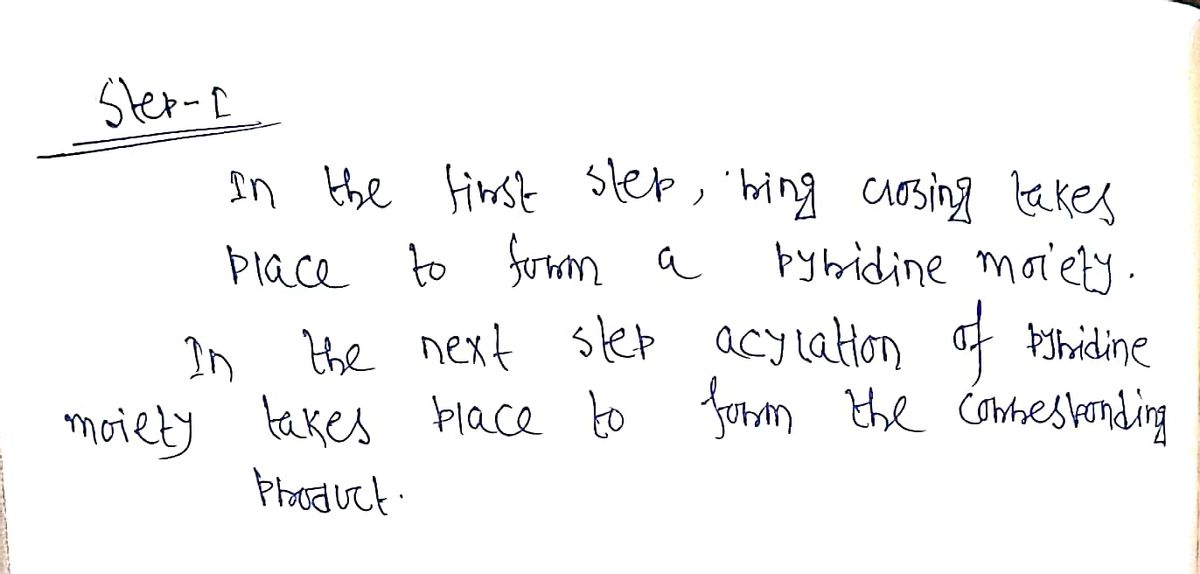 Step-I
In the first step, ring closing takes
place to form a pyridine moiety.
In the next step acylation of pyridine
moiety takes place to form the corresponding
product.